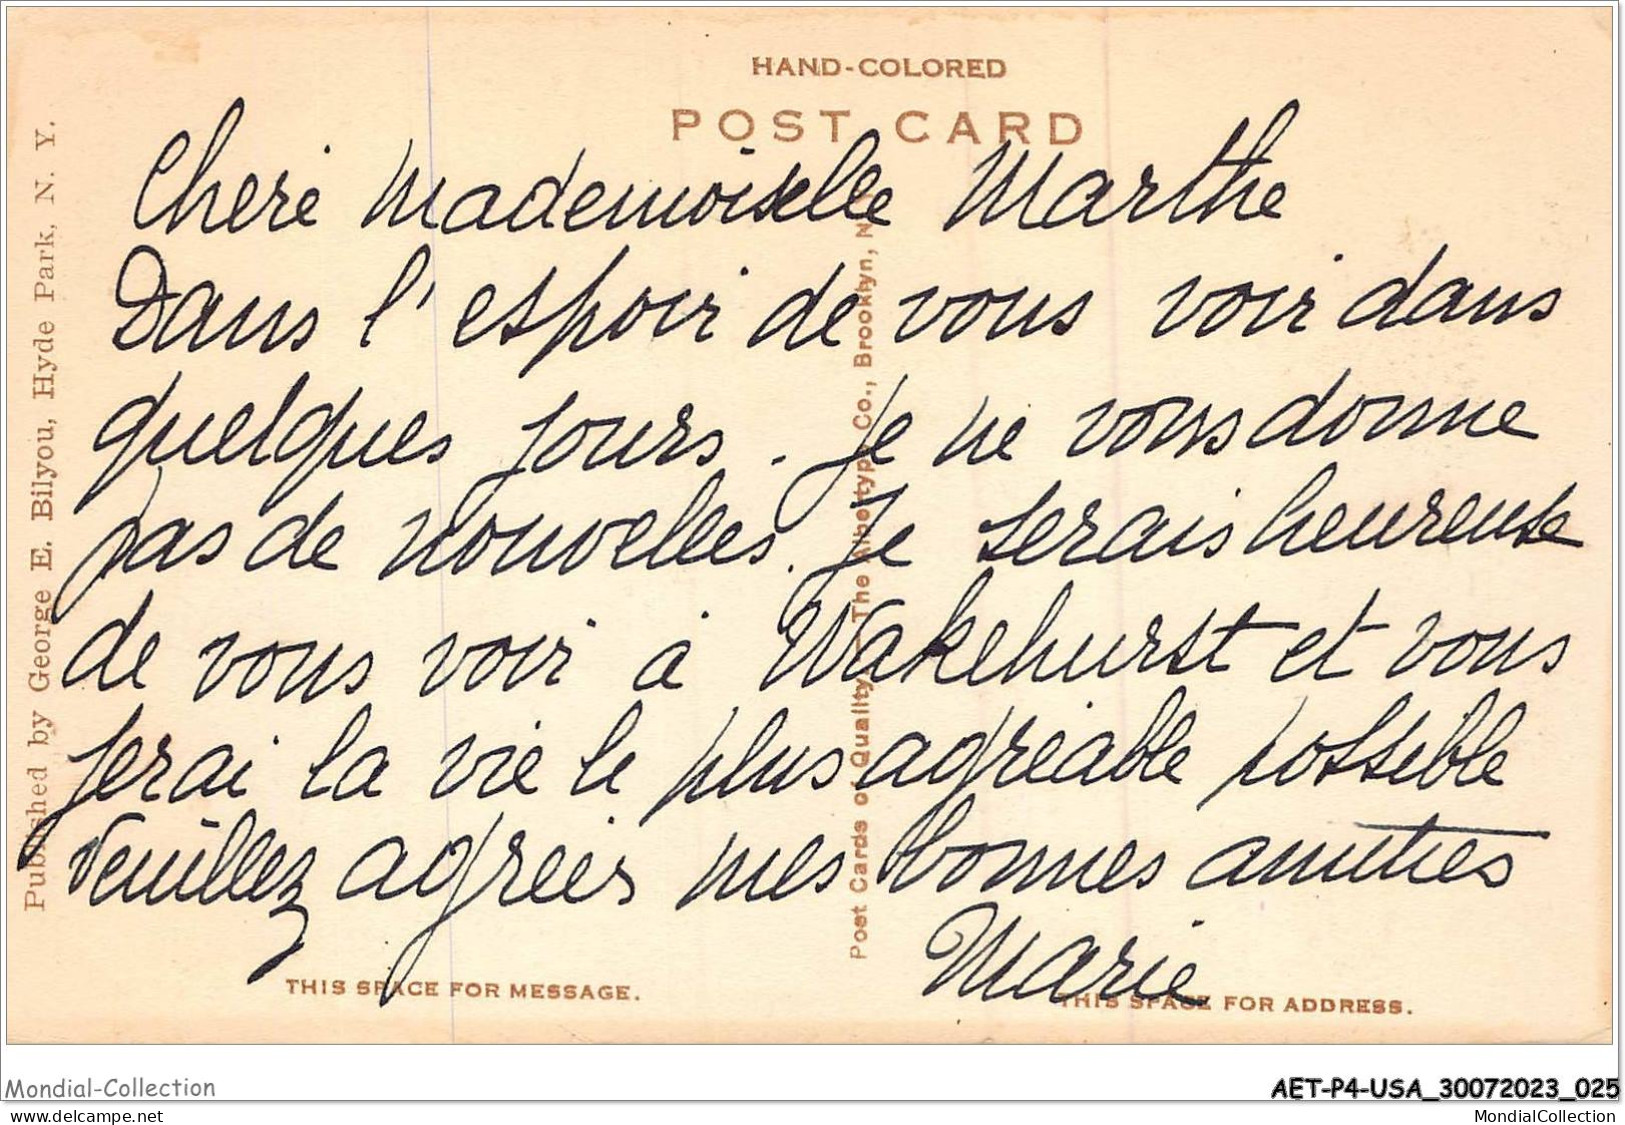 HAND-COLORED
POST CARD
Cheré Mademoiselle Marthe
Dans l'espoir de vous voir dans
quelques jours. Je ne vous donne
pas de nouvelles. Je serais heureuse
de vous voir à Wakehurst et vous
ferai la vie le plus agréable possible
Veuillez agréer mes bonnes amitiés
Marie
Published by George E. Bilyou, Hyde Park, N. Y.
Post Cards of Quality. — The Albertype Co., Brooklyn, N.
THIS SPACE FOR MESSAGE.
THIS SPACE FOR ADDRESS.
Mondial-Collection
AET-P4-USA_30072023_025
www.delcampe.net
MondialCollection